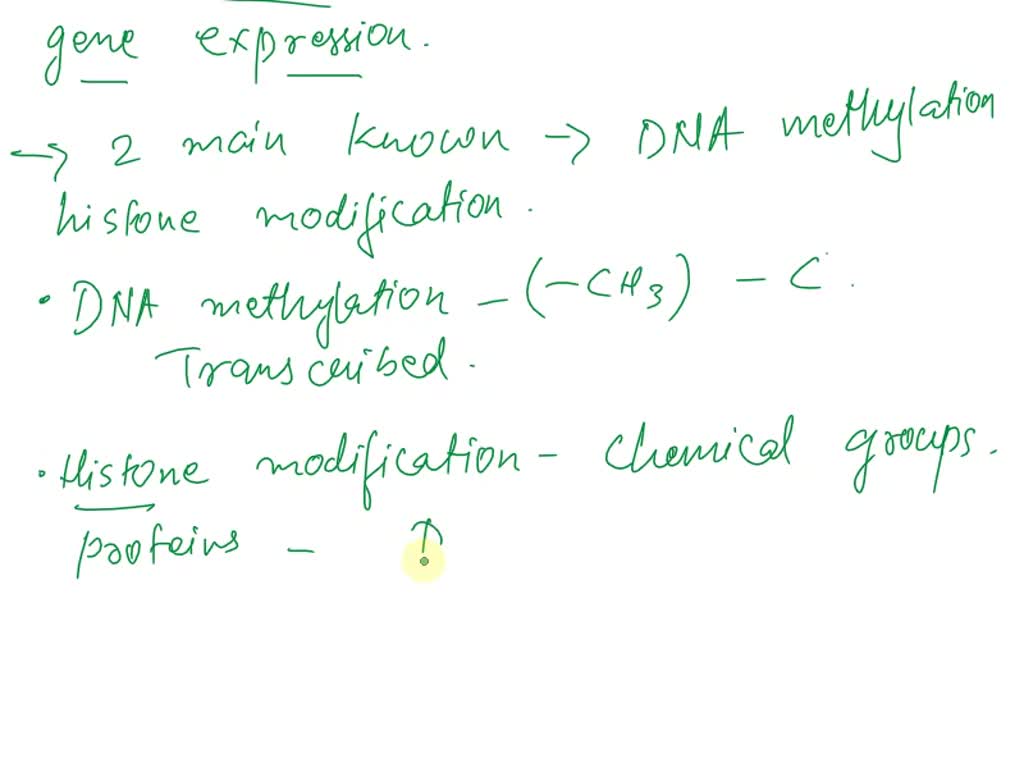 gene expression.
→ 2 main known → DNA methylation
histone modification.
• DNA methylation - (-CH3) - C.
Transcribed.
• Histone modification - chemical groups.
proteins -